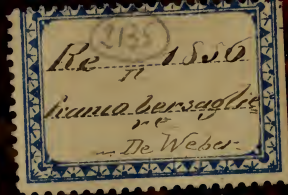 2135
Re 1886
n
hama bersaglie
re
- De Weber -